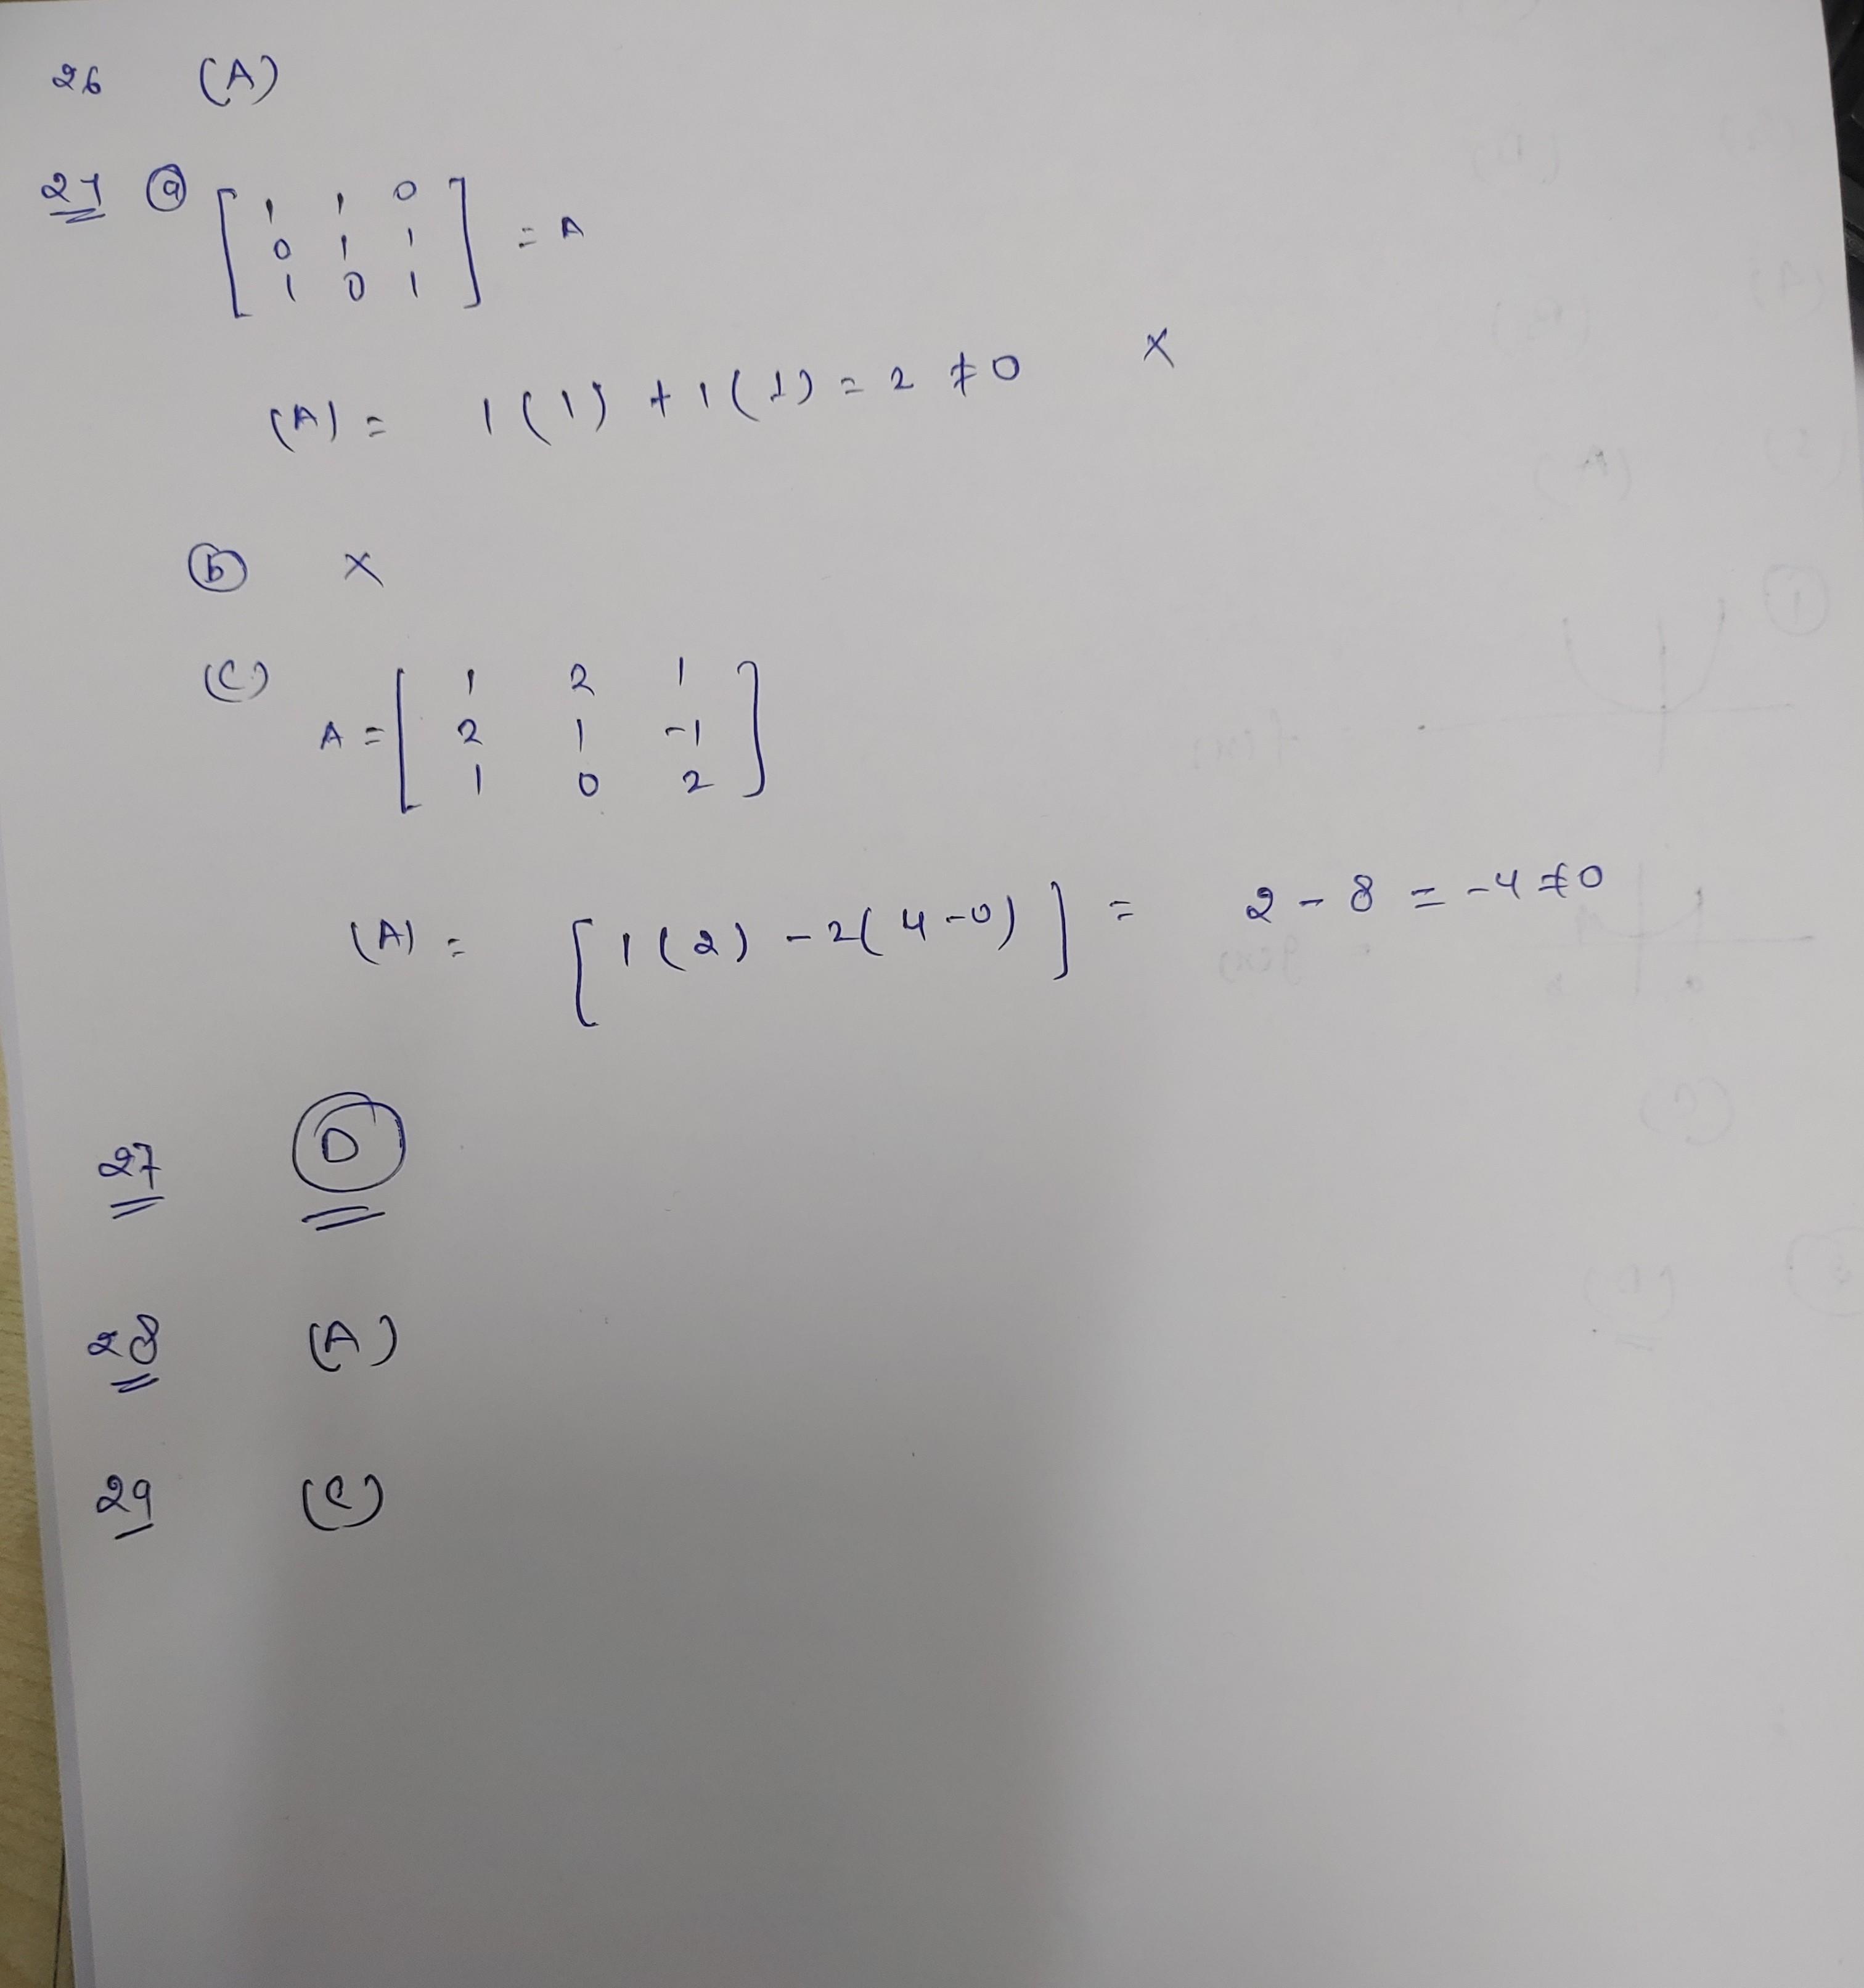 26 (A)
27 (a) [ 1 1 0
0 1 1
1 0 1 ] = A
(A) = 1(1) + 1(1) = 2 ≠ 0 ×
(b) ×
(C)
A = [ 1 2 1
2 1 -1
1 0 2 ]
(A) = [ 1(2) - 2(4-0) ] = 2 - 8 = -4 ≠ 0
27 D
28 (A)
29 (C)